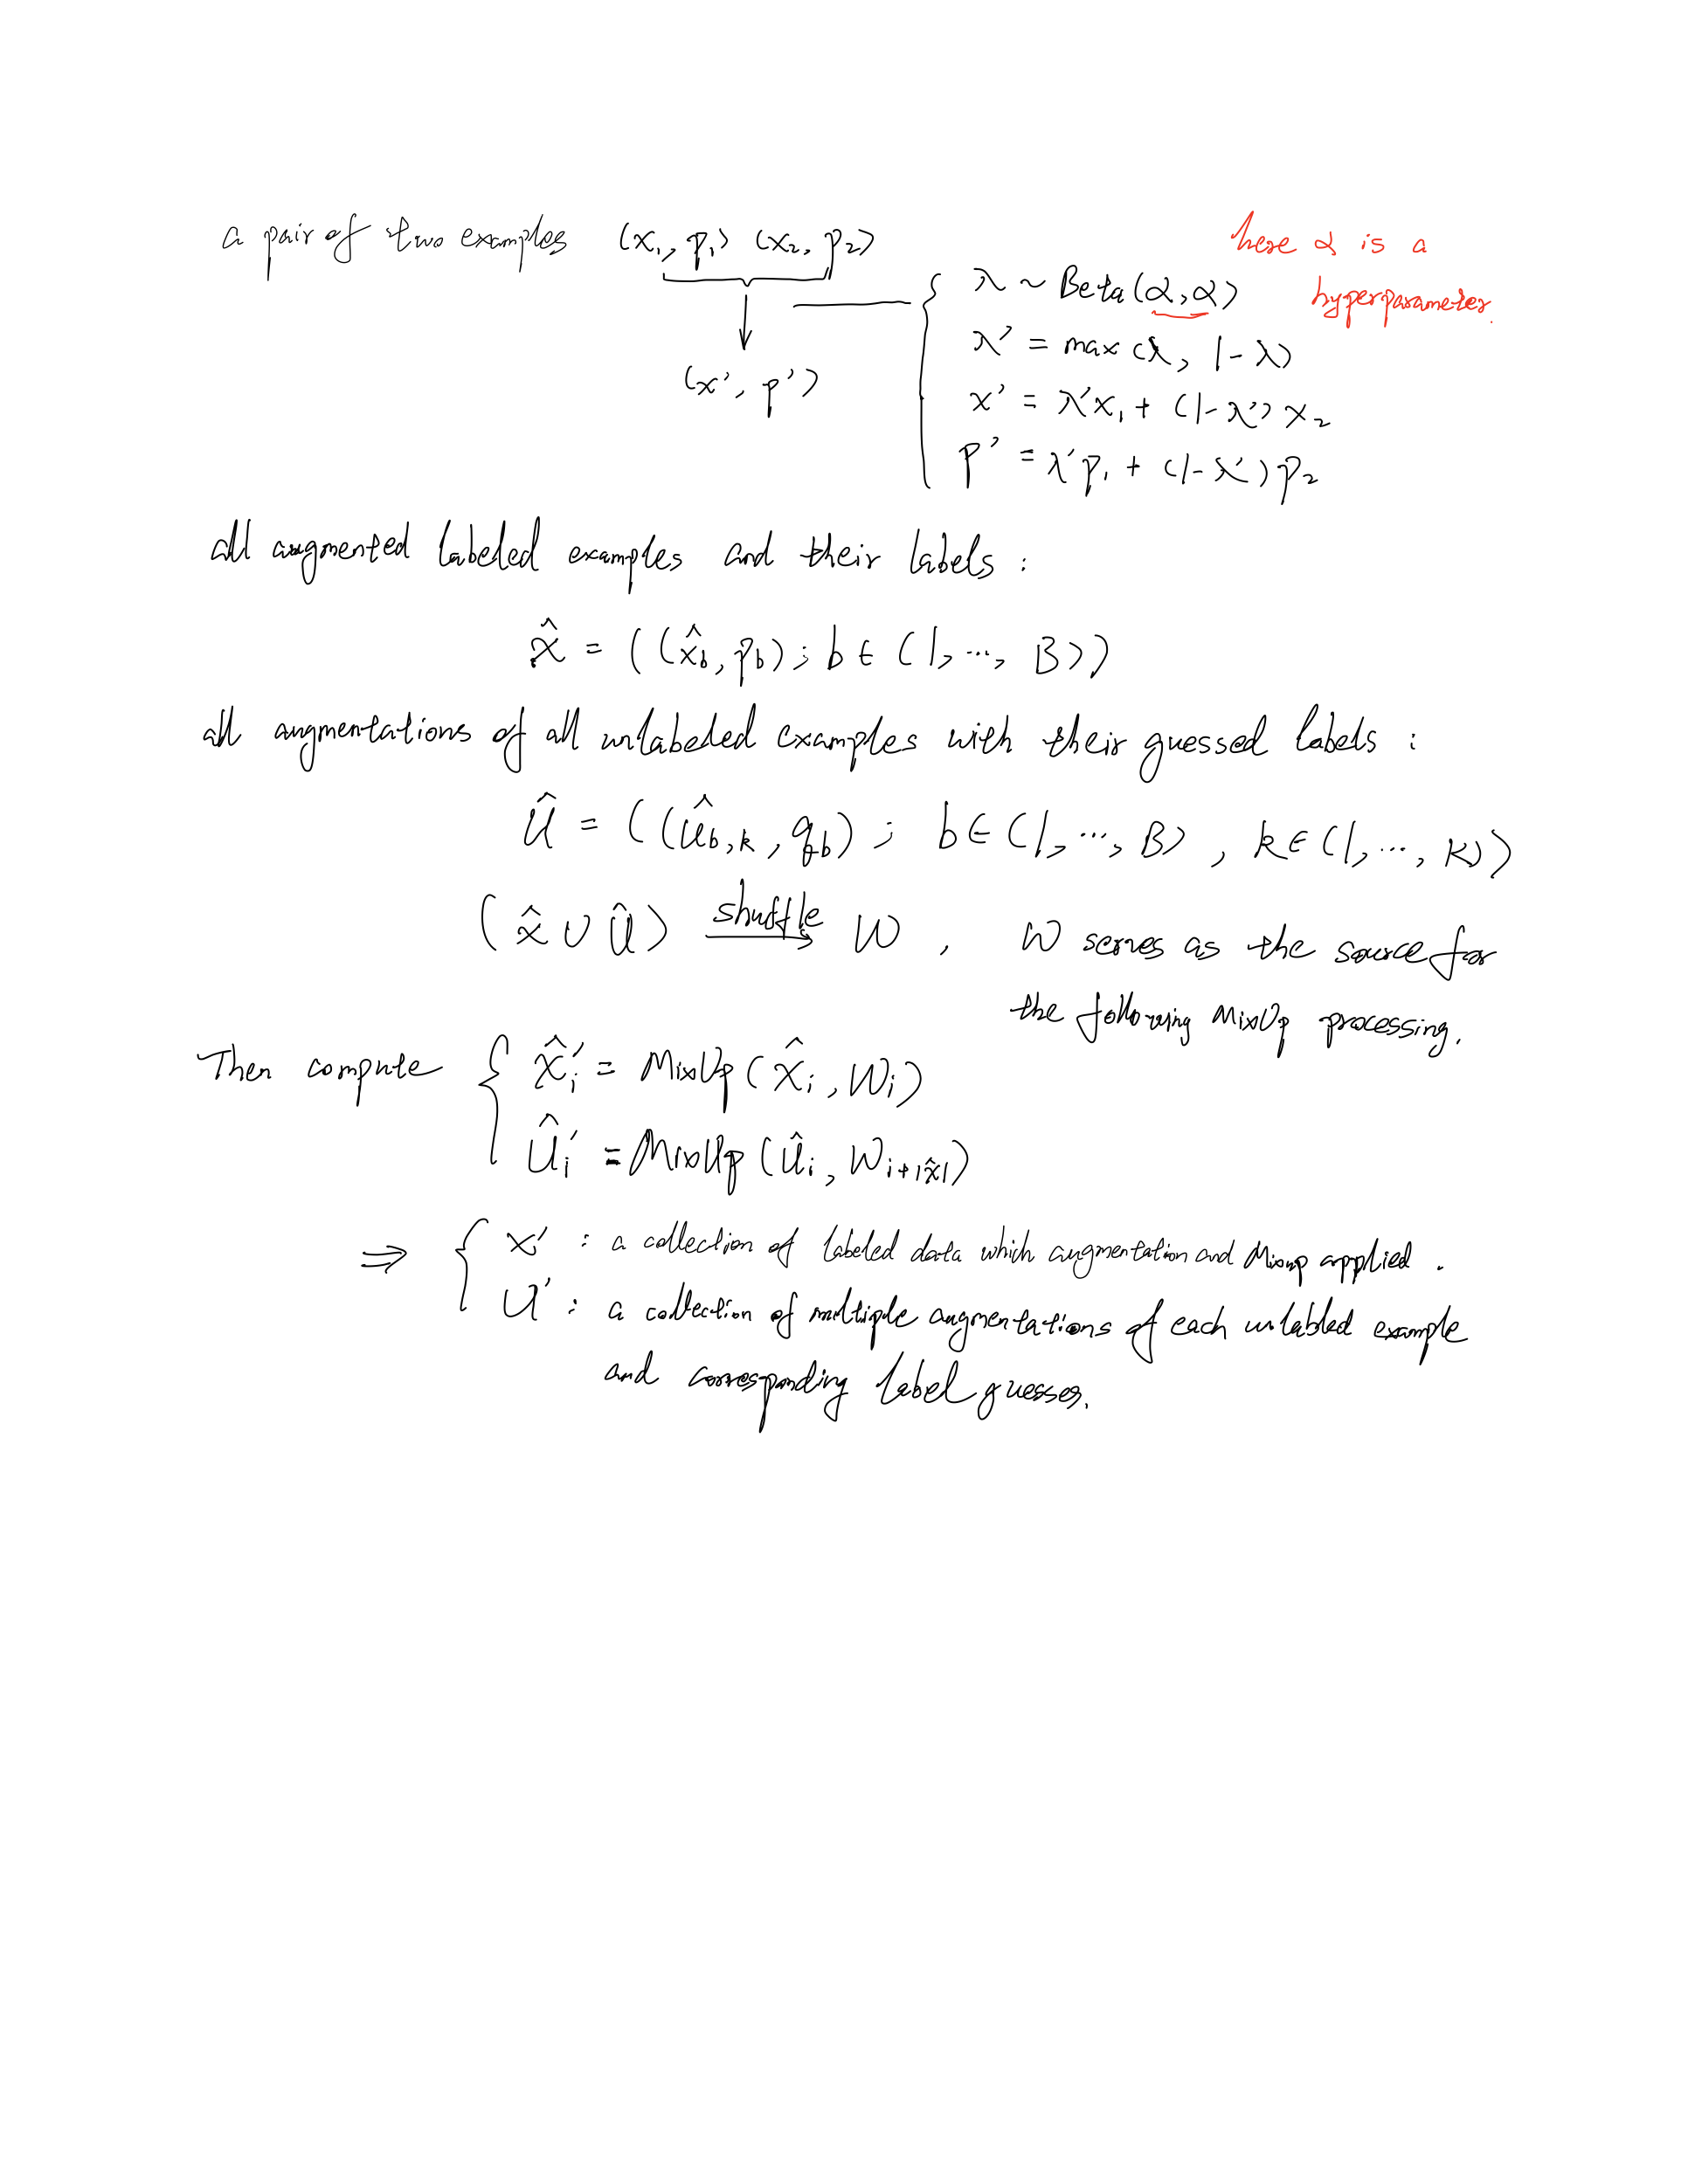 a pair of two examples (x₁, p₁) (x₂, p₂)
here α is a
hyperparameter.
λ ~ Beta(α, α)
λ' = max(λ, 1-λ)
(x', p')
x' = λ'x₁ + (1-λ')x₂
p' = λ'p₁ + (1-λ')p₂
all augmented labeled examples and their labels :
X̂ = ((x̂b, pb); b ∈ (1, ..., B))
all augmentations of all unlabeled examples with their guessed labels :
Û = ((ûb,k, qb); b ∈ (1, ..., B), k ∈ (1, ..., K))
(X̂ ∪ Û) shuffle → W , W serves as the source for
the following MixUp processing.
Then compute { X̂i' = MixUp(X̂i, Wi)
Ûi' = MixUp(Ûi, Wi+|X̂|)
⇒ { X' : a collection of labeled data which augmentation and Mixup applied.
U' : a collection of multiple augmentations of each unlabled example
and corresponding label guesses.